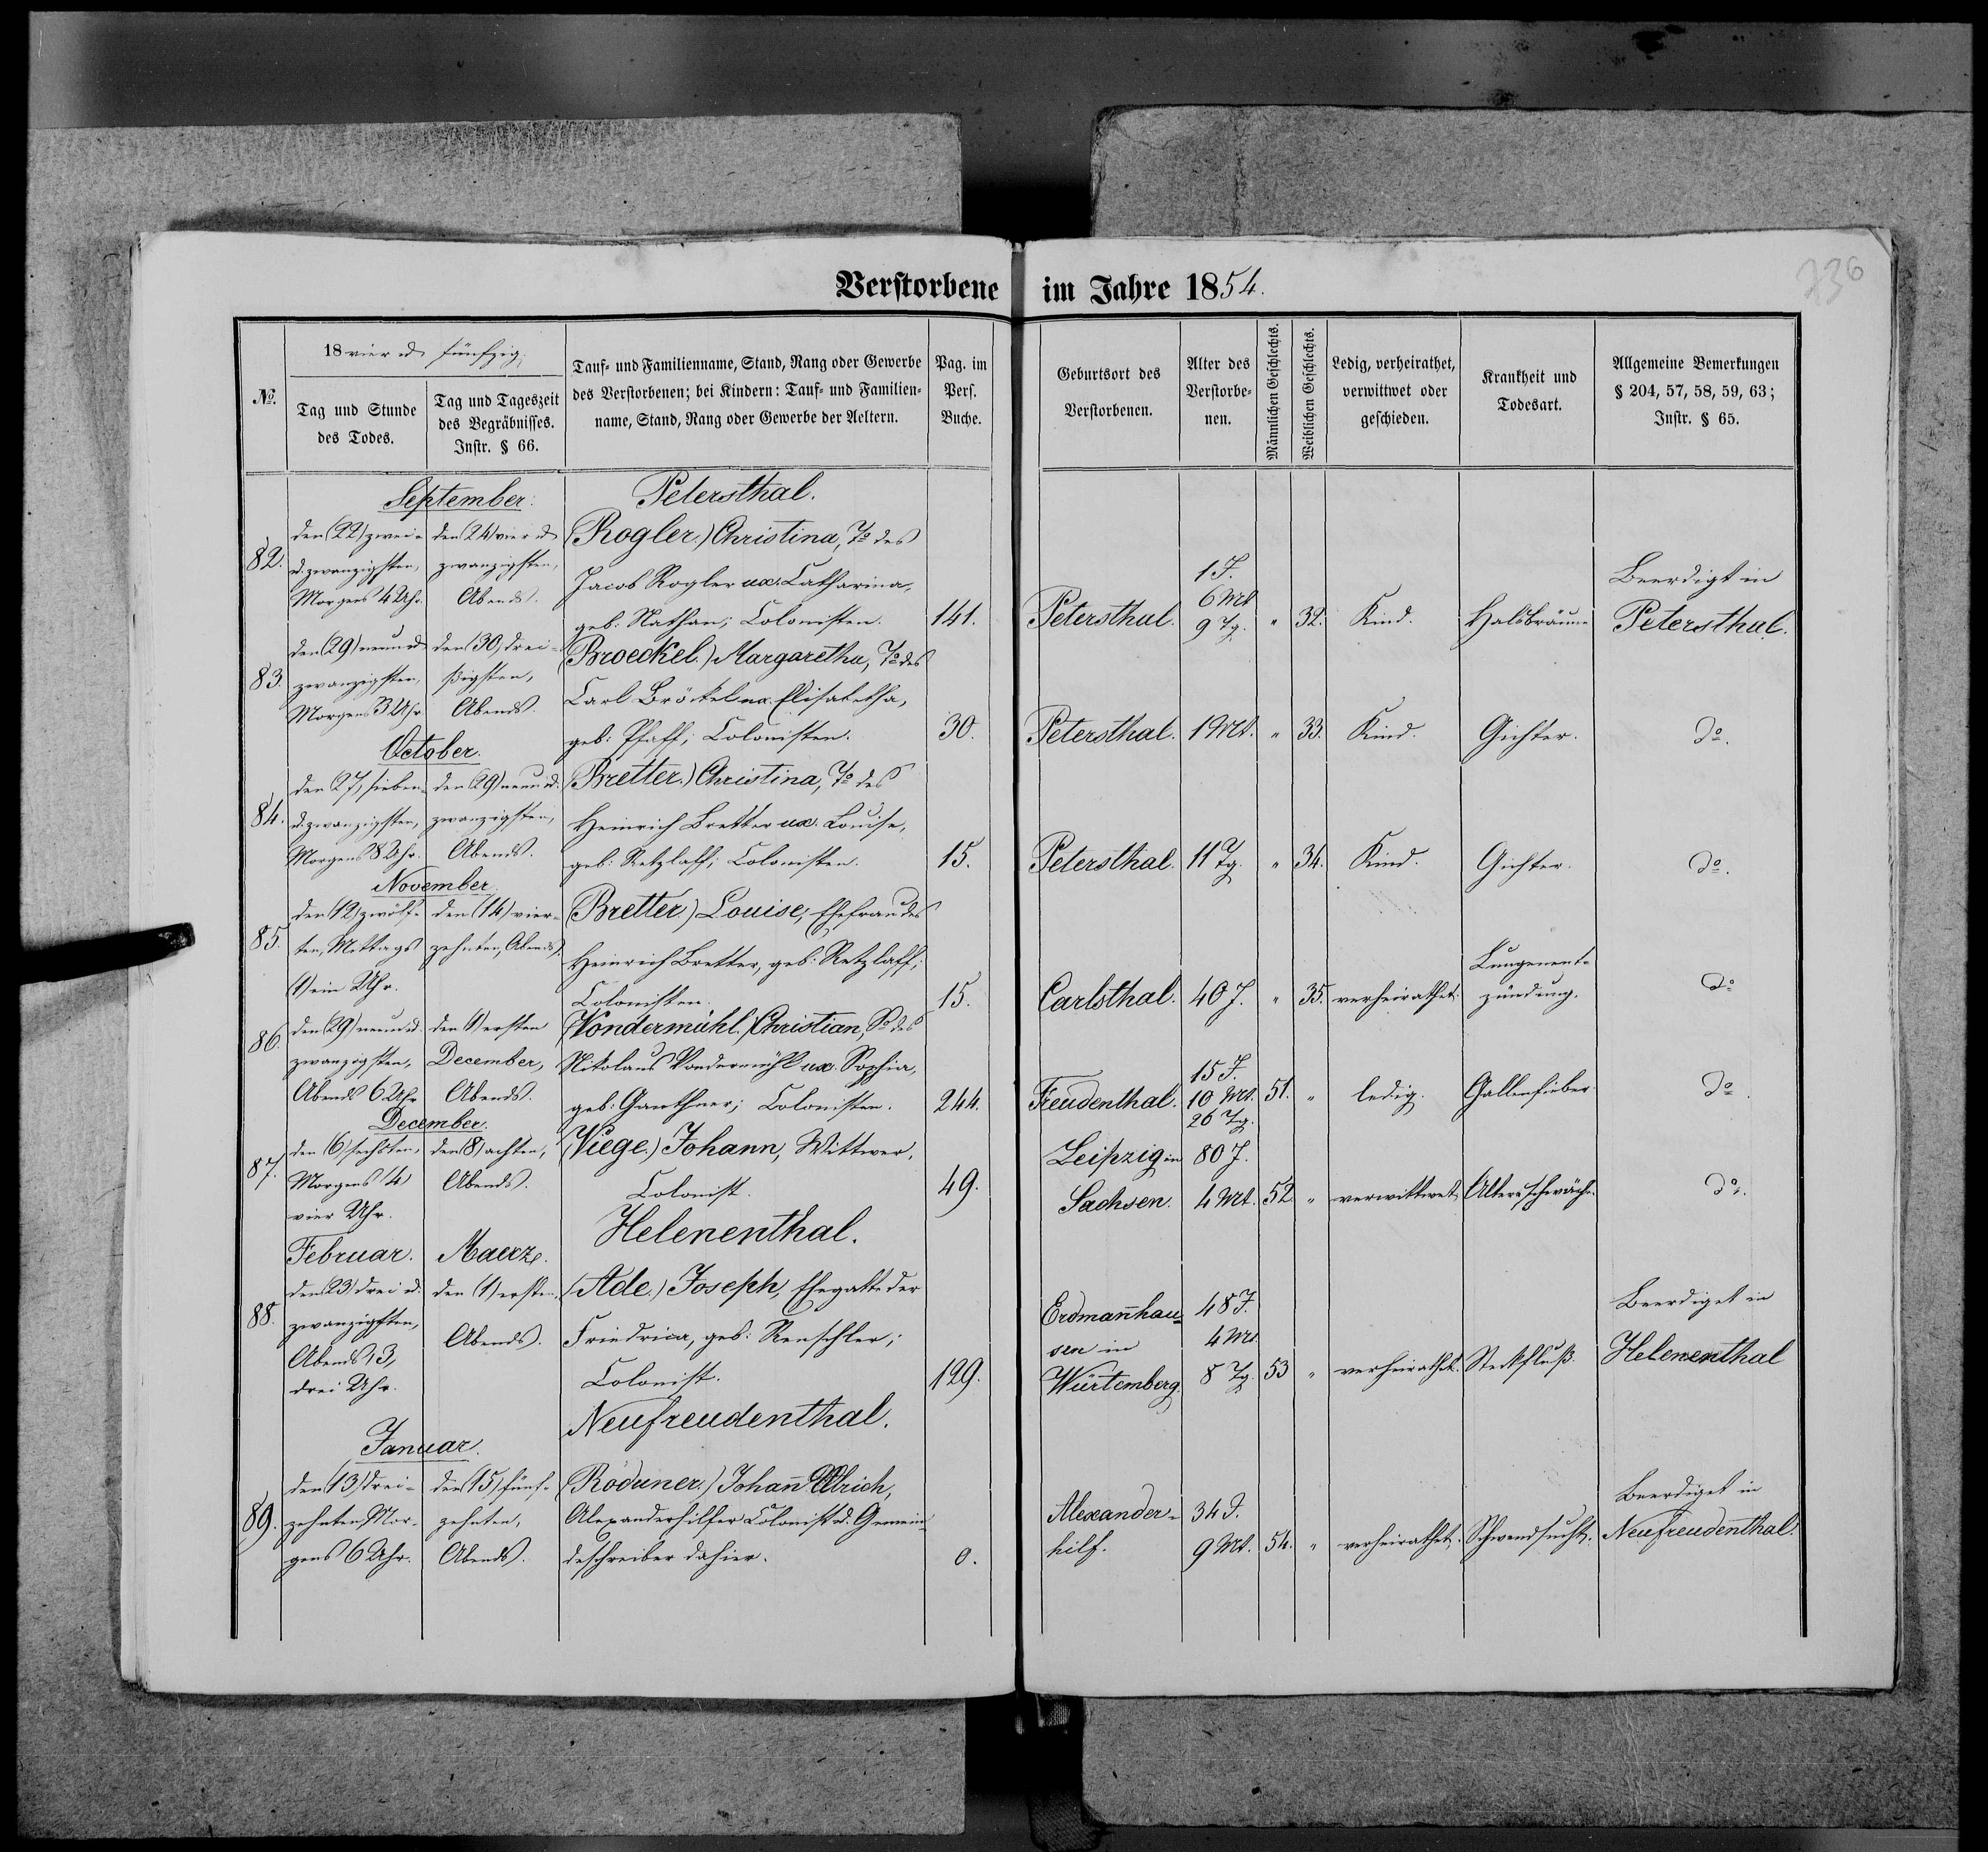 Verstorbene im Jahre 1854.
736
№.
18 vier u. fünfzig.
Tag und Stunde
des Todes.
Tag und Tageszeit
des Begräbnisses.
Instr. § 66.
Tauf- und Familienname, Stand, Rang oder Gewerbe
des Verstorbenen; bei Kindern: Tauf- und Familien-
name, Stand, Rang oder Gewerbe der Aeltern.
Pag. im
Pers.
Buche.
Geburtsort des
Verstorbenen.
Alter des
Verstorbe-
nen.
Männlichen Geschlechts.
Weiblichen Geschlechts.
Ledig, verheirathet,
verwittwet oder
geschieden.
Krankheit und
Todesart.
Allgemeine Bemerkungen
§ 204, 57, 58, 59, 63;
Instr. § 65.
September.
Petersthal.
82.
den (22) zwei-
u. zwanzigsten,
Morgens 4 Uhr.
den (24) vier u.
zwanzigsten,
Abends.
(Rogler.) Christina, To des
Jacob Rogler ux. Catharina,
geb: Nathan; Colonisten.
141.
Petersthal.
1 J.
6 Mt.
9 Tg.
" 32.
Kind.
Halsbräune
Beerdigt in
Petersthal.
83.
den (29) neun u.
zwanzigsten,
Morgens 3 Uhr.
den (30) drei-
ßigsten,
Abends.
(Broeckel.) Margaretha, To des
Carl Bröckel ux. Elisabetha,
geb: Pfaff; Colonisten.
30.
Petersthal.
1 Mt.
" 33.
Kind.
Gichter.
do.
October.
84.
den (27) sieben-
u. zwanzigsten,
Morgens 8 Uhr.
den (29) neun u.
zwanzigsten,
Abends.
(Bretter.) Christina, To des
Heinrich Bretter ux. Louise,
geb: Retzlaff; Colonisten.
15.
Petersthal.
11 Tg.
" 34.
Kind.
Gichter.
do.
November.
85.
den (12) zwölf-
ten, Mittags
(1) ein Uhr.
den (14) vier-
zehnten, Abends.
(Bretter) Louise; Ehefrau des
Heinrich Bretter, geb: Retzlaff;
Colonisten.
15.
Carlsthal.
40 J.
" 35.
verheirathet.
Lungenent-
zündung.
do
86.
den (29) neun u.
zwanzigsten,
Abends 6 Uhr
den (1) ersten
December,
Abends.
(Vondermühl.) Christian, So des
Nikolaus Vondermühl ux. Sophia,
geb: Ganthner; Colonisten.
244.
Freudenthal.
15 J.
10 Mt.
26 Tg.
51. "
ledig.
Gallenfieber.
do.
December.
87.
den (6) sechsten,
Morgens (4)
vier Uhr.
den (8) achten,
Abends.
(Viege.) Johann, Wittwer,
Colonist.
49.
Leipzig in
Sachsen.
80 J.
4 Mt.
52 "
verwittwet
Altersschwäche.
do.
Helenenthal.
Februar.
Maerz.
88.
den (23) drei u.
zwanzigsten,
Abends (3)
drei Uhr.
den (1) ersten,
Abends.
(Ade.) Joseph, Ehegatte der
Friedrica, geb: Renschler;
Colonist.
129.
Erdmannhau-
sen in
Würtemberg.
48 J.
4 Mt.
8 Tg.
53 "
verheirathet.
Steckfluß.
Beerdiget in
Helenenthal
Neufreudenthal.
Januar.
89.
den (13) drei-
zehnten Mor-
gens 6 Uhr.
den (15) fünf-
zehnten,
Abends.
(Röduner.) Johann Ulrich,
Alexanderhilfer Colonist u. Gemein-
deschreiber dahier.
0.
Alexander-
hilf.
34 J.
9 Mt.
54. "
verheirathet.
Schwendsucht.
Beerdiget in
Neufreudenthal.